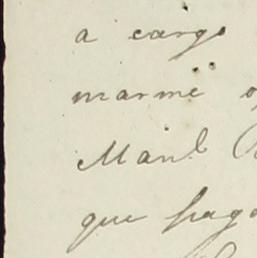 a cargo
marme
Man.l
que paga